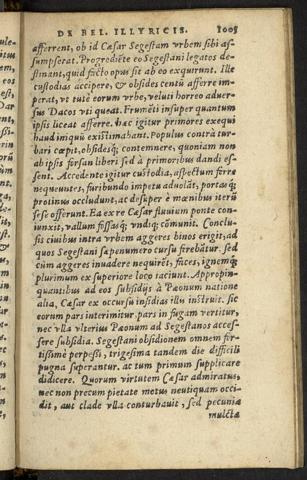 DE BEL. ILLYRICIS. 1005
afferrent, ob id Cæsar Segestam vrbem sibi as-
sumpserat. Progrediẽte eo Segestani legatos de-
stinant, quid facto opus sit ab eo exquirunt. Ille
custodias accipere, & obsides centũ afferre im-
perat, vt tutè eorum vrbe, veluti horreo aduer-
sus Dacos vti queat. Frumẽti insuper quantum
ipsis liceat afferre. hæc igitur primores exequi
haud iniquũ existimabant. Populus contrà tur-
bari cœpit, obsidesq́; contemnere, quoniam non
ab ipsis forsan liberi sed à primoribus dandi es-
sent. Accedente igitur custodia, aspectum ferre
nequeuntes, furibundo impetu aduolãt, portasq́;
protinus occludunt, ac desuper è mœnibus iterũ
sese offerunt. Ea ex re Cæsar fluuium ponte con-
iunxit, vallum fossasq́; vndiq; cõmunit. Conclu-
sis ciuibus intra vrbem aggeres binos erigit, ad
quos Segestani sæpenumero cursu ferebãtur. sed
cùm aggeres inuadere nequirẽt, faces, ignemq́;
plurimum ex superiore loco iaciunt. Appropin-
quantibus ad eos subsidijs à Pæonum natione
alia, Cæsar ex occursu insidias illu instruit. sic
eorum pars interimitur. pars in fugam vertitur,
nec vlla vlterius Pæonum ad Segestanos acces-
sere subsidia. Segestani obsidionem omnem for-
tissimè perpessi, trigesima tandem die difficili
pugna superantur. ac tum primum supplicare
didicere. Quorum virtutem Cæsar admiratus,
nec non precum pietate metus neutiquam occi-
dit, aut clade vlla conturbauit, sed pecunia
mulcta